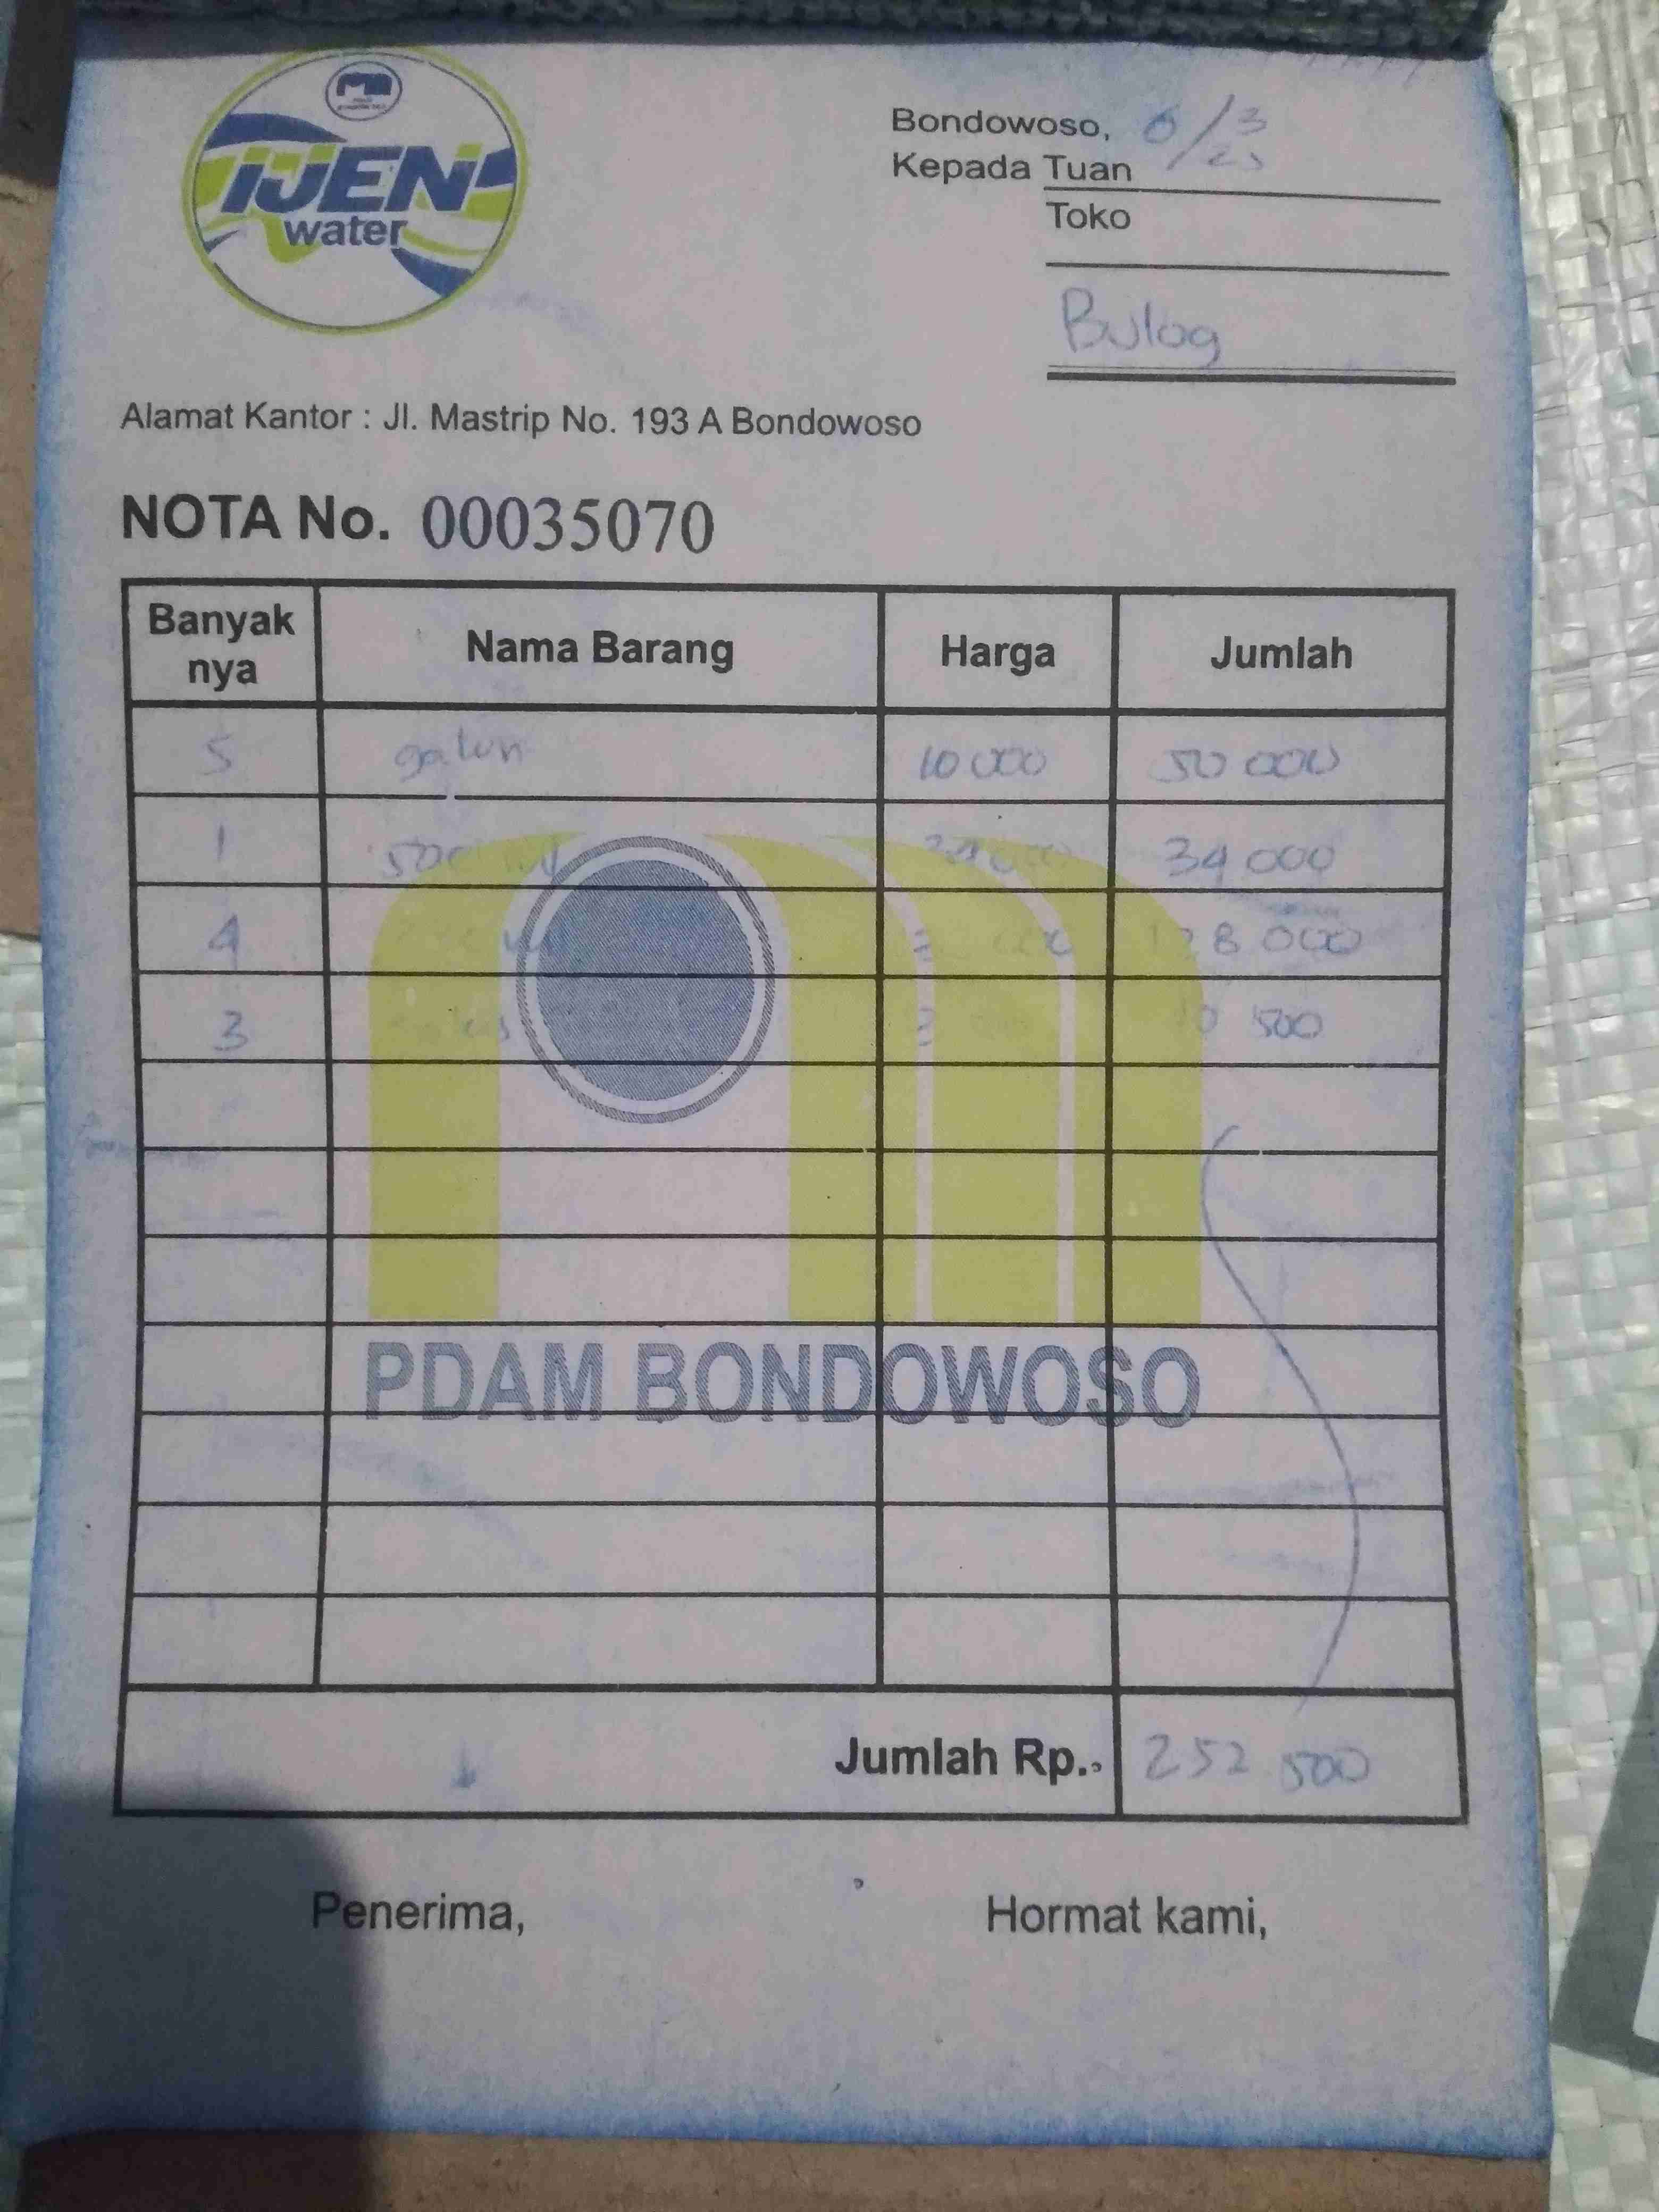 IJEN
water
Bondowoso, 6/3
23
Kepada Tuan
Toko
Bulog
Alamat Kantor : Jl. Mastrip No. 193 A Bondowoso
NOTA No. 00035070
Banyak nya Nama Barang Harga Jumlah
5 galon 10 000 50 000
1 500 ml 34 000
4 ml 128 000
3 10 500
PDAM BONDOWOSO
Jumlah Rp. 252 500
Penerima, Hormat kami,